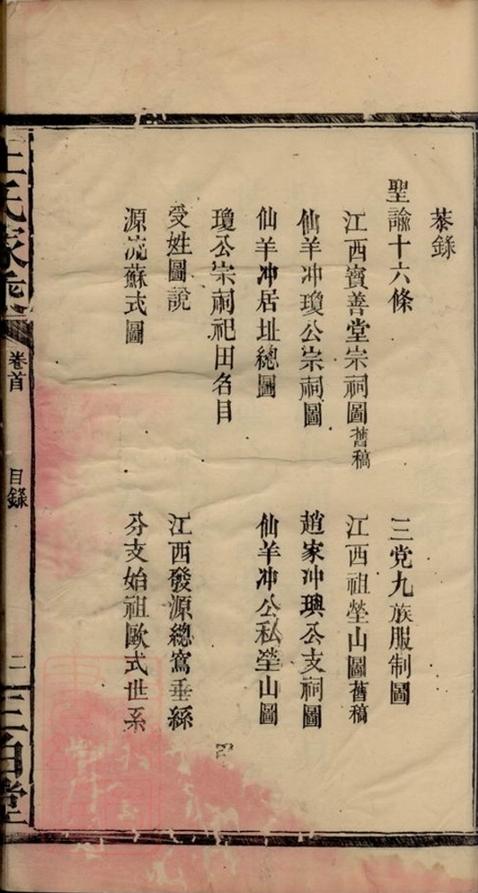 恭錄
聖諭十六條
三党九族服制圖
江西寶善堂宗祠圖舊稿
江西祖塋山圖舊稿
仙羊冲瓊公宗祠圖
趙家冲璵公支祠圖
仙羊冲居址總圖
仙羊冲公私塋山圖
瓊公宗祠祀田名目
受姓圖說
江西發源總寫垂絲
源流蘇式圖
分支始祖歐式世系
氏家
卷首
目錄
二
堂